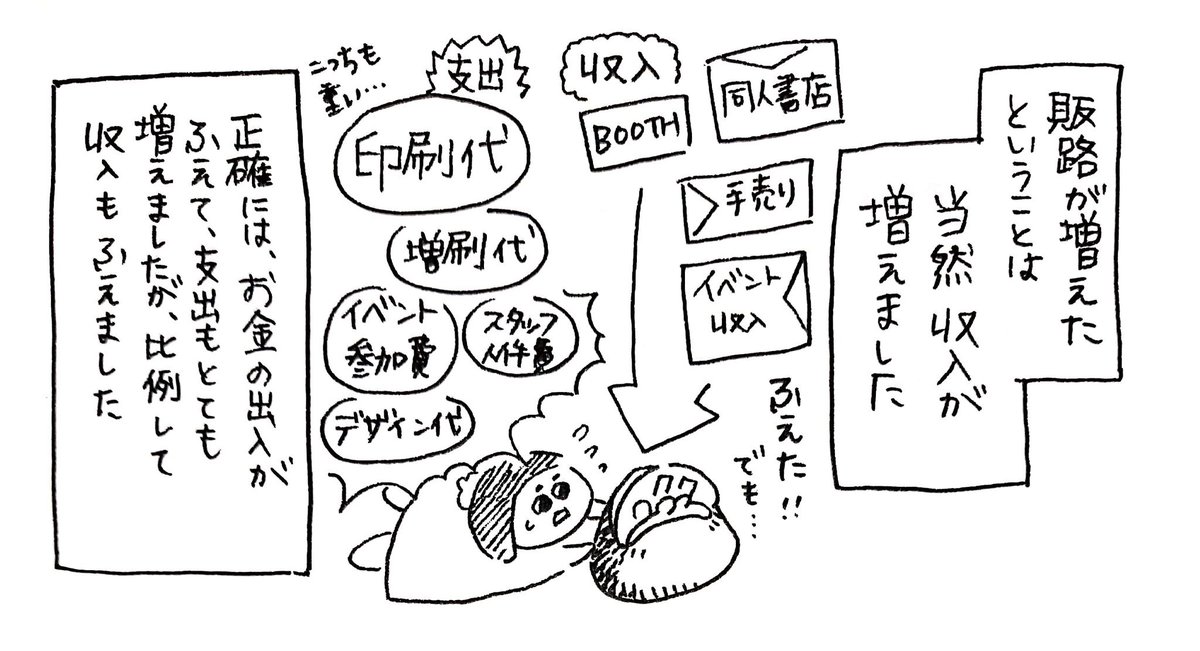 販路が増えた
ということは
当然収入が
増えました
収入
同人書店
BOOTH
手売り
イベント
収入
ふえた!!
でも…
支出
こっちも
重い…
印刷代
増刷代
イベント
参加費
スタッフ
人件費
デザイン代
正確には、お金の出入が
ふえて、支出もとても
増えましたが、比例して
収入もふえました